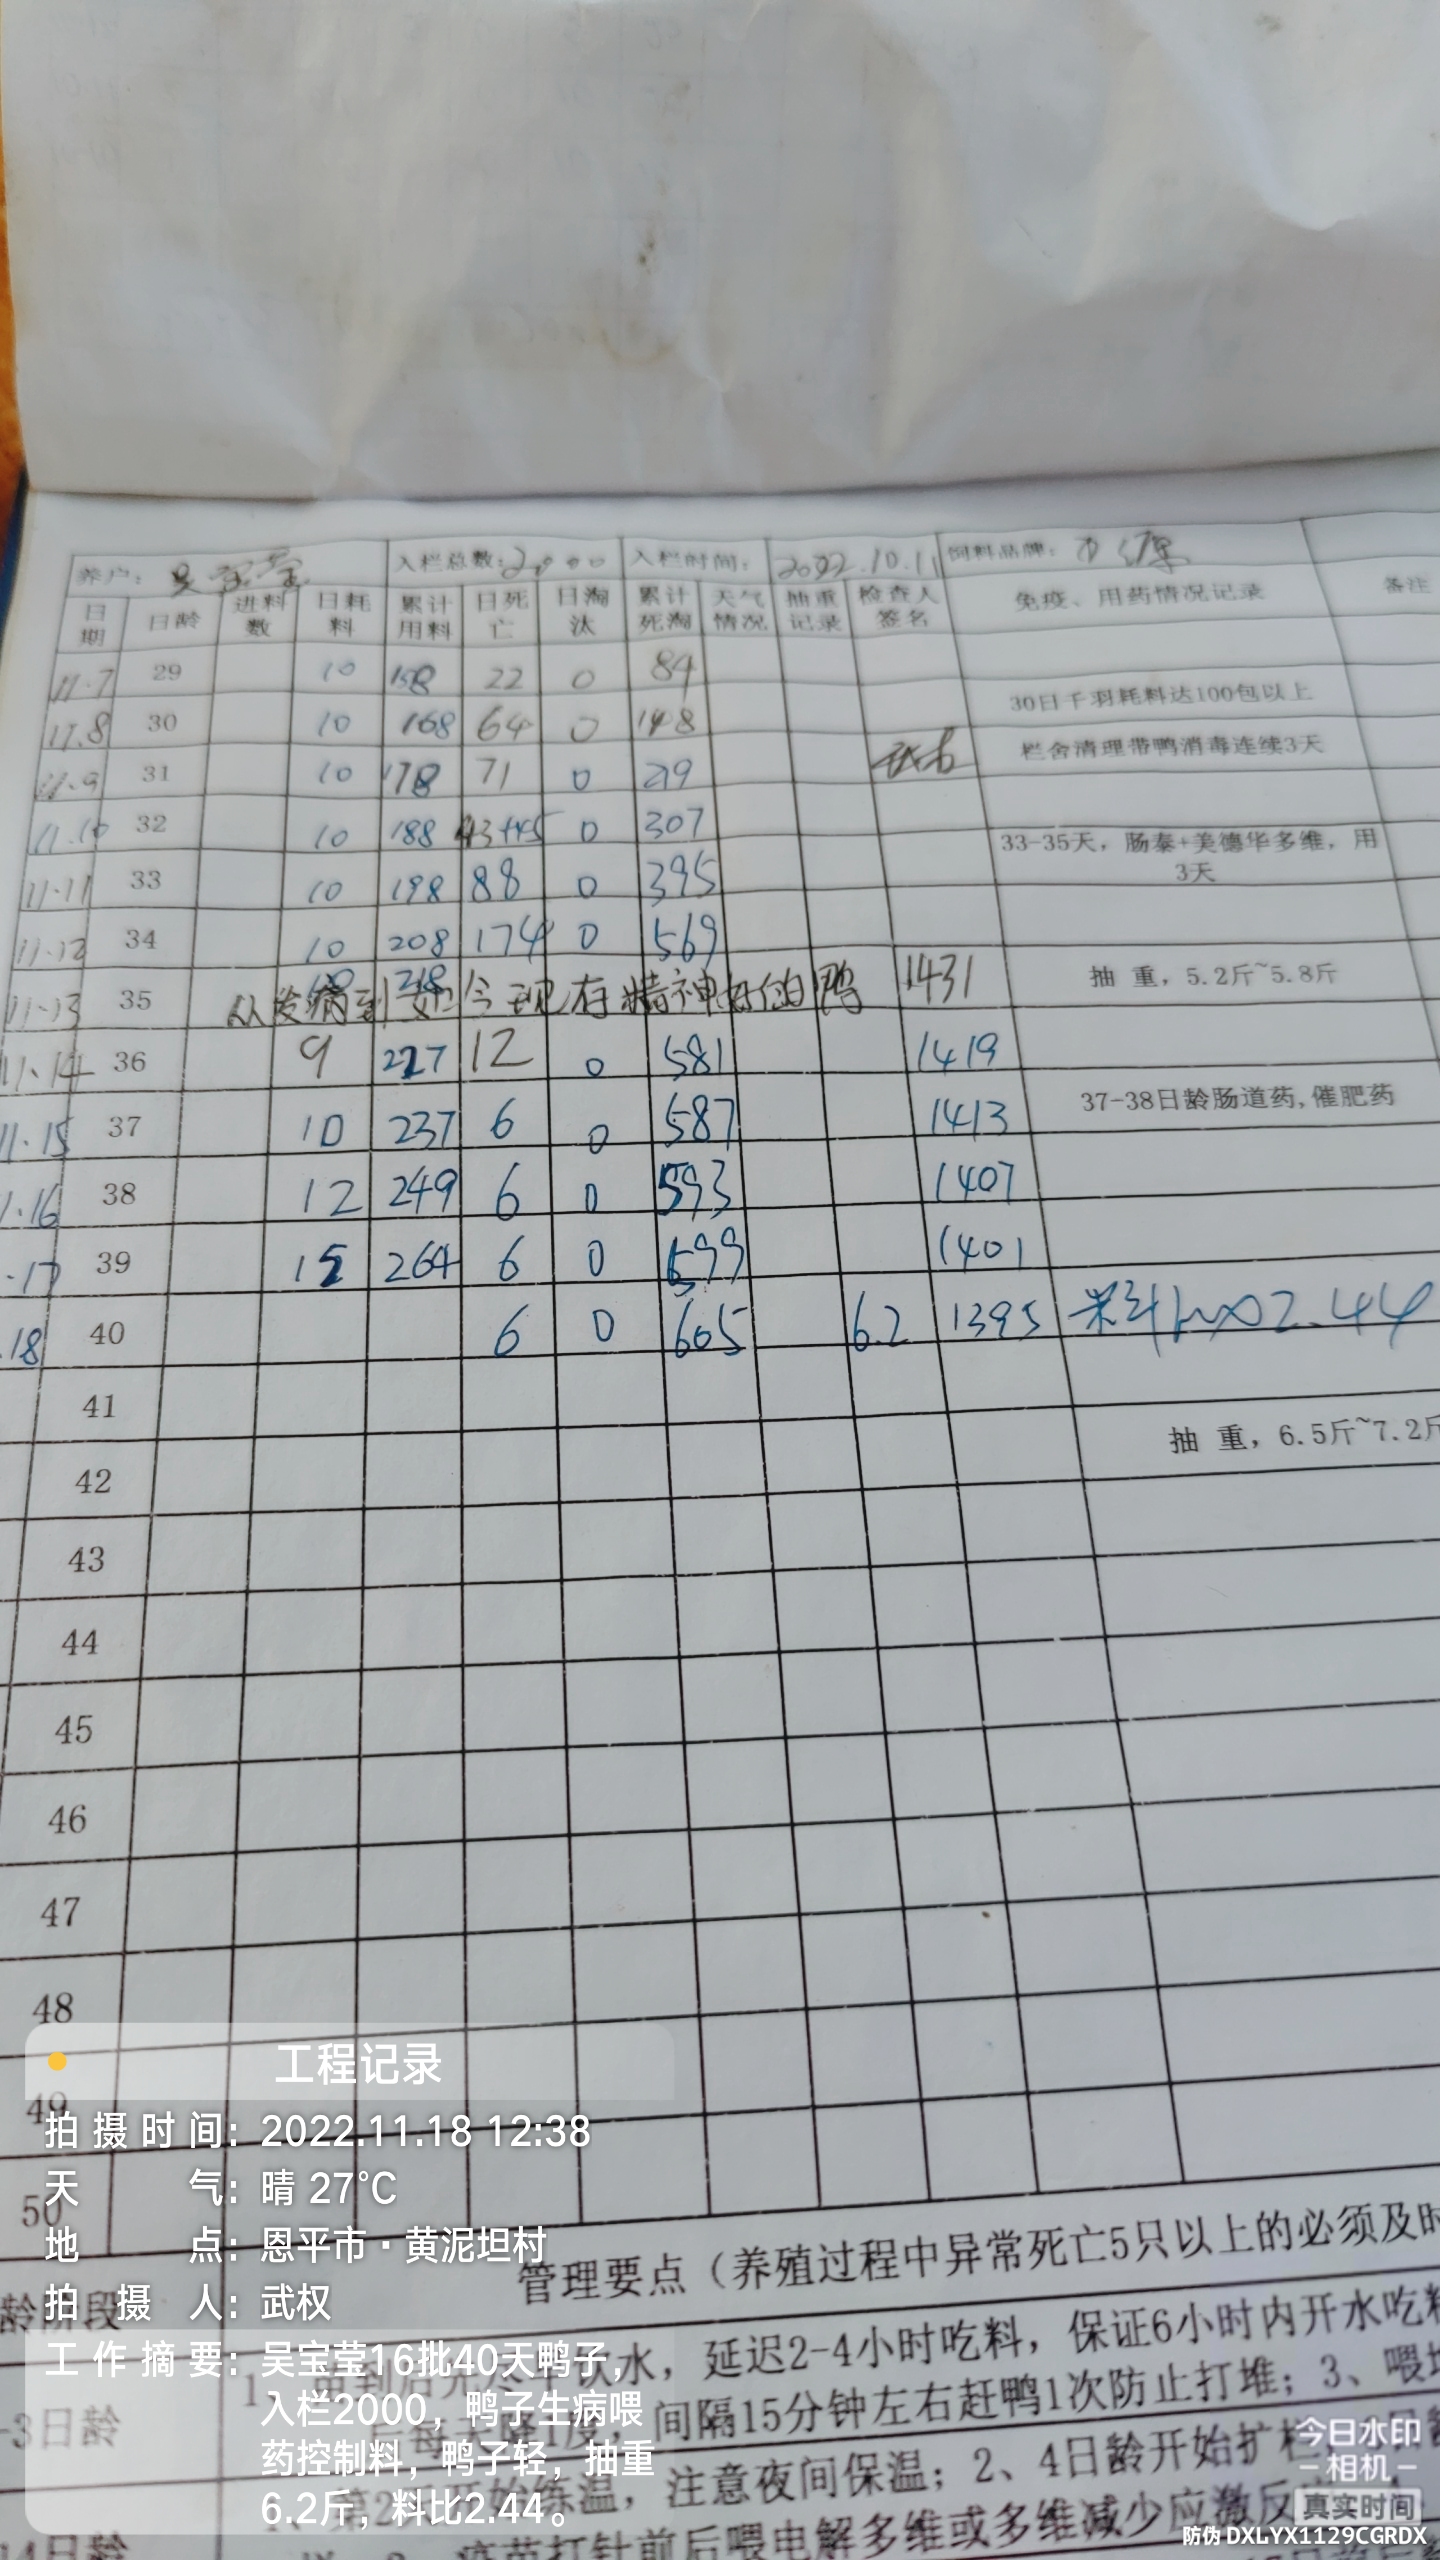 养户: 吴宝莹 入栏总数: 2000 入栏时间: 2022.10.11 饲料品牌:
日期 日龄 进料数 日耗料 累计用料 日死亡 日淘汰 累计死淘 天气情况 抽重记录 检查人签名 免疫、用药情况记录 备注
11.7 29 10 158 22 0 84
11.8 30 10 168 64 0 148 30日千羽耗料达100包以上
11.9 31 10 178 71 0 219 栏舍清理带鸭消毒连续3天
11.10 32 10 188 43+45 0 307
11.11 33 10 198 88 0 395 33-35天，肠泰+美德华多维，用3天
11.12 34 10 208 174 0 569
11.13 35 10 218 从发病到如今现存精神好的鸭 1431 抽 重，5.2斤~5.8斤
11.14 36 9 227 12 0 581 1419
11.15 37 10 237 6 0 587 1413 37-38日龄肠道药,催肥药
1.16 38 12 249 6 0 593 1407
.17 39 15 264 6 0 599 1401
.18 40 6 0 605 6.2 1395 料比2.44
41
42 抽 重，6.5斤~7.2斤
43
44
45
46
47
48
49
50
管理要点（养殖过程中异常死亡5只以上的必须及时
龄阶段
饮水，延迟2-4小时吃料，保证6小时内开水吃料
-3日龄
间隔15分钟左右赶鸭1次防止打堆；3、喂
开始练温，注意夜间保温；2、4日龄开始扩栏
14日龄
疫苗打针前后喂电解多维或多维减少应激反
工程记录
拍摄时间：2022.11.18 12:38
天气：晴 27℃
地点：恩平市·黄泥坦村
拍摄人：武权
工作摘要：吴宝莹16批40天鸭子，
入栏2000，鸭子生病喂
药控制料，鸭子轻，抽重
6.2斤，料比2.44。
今日水印
相机
真实时间
防伪 DXLYX1129CGRDX